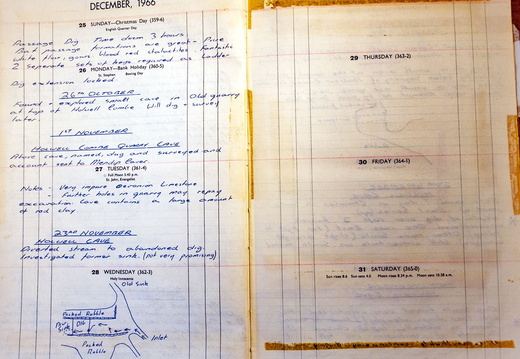 DECEMBER, 1966
25 SUNDAY—Christmas Day (359-6)
English Quarter Day
Passage Dig Time down 3 hours.
Bat passage formations are great - Pure
white floor, gours blood red stalactites Fantastic
2 Separate sets of keys required as ladder
26 MONDAY—Bank Holiday (360-5)
St. Stephen Boxing Day
Dig extension locked
26TH OCTOBER
Found & explored small cave in Old quarry
at top of Holwell Combe. Will dig & survey
later.
1ST NOVEMBER
HOLWELL COMBE QUARRY CAVE
Above cave, named, dug and surveyed and
account sent to Mendip Caver
27 TUESDAY (361-4)
Full Moon 5.43 p.m.
St. John, Evangelist
Note - Very impure Devonian Limestone
- Further holes in quarry may repay
excavation. Cave contains a large amount
of red clay
23RD NOVEMBER
HOLWELL CAVE
Diverted stream to abandoned dig.
Investigated former sink. (not very promising)
28 WEDNESDAY (362-3)
Holy Innocents
Old Sink
Packed Rubble
Old
Sink
Inlet
Packed
Rubble
29 THURSDAY (363-2)
30 FRIDAY (364-1)
31 SATURDAY (365-0)